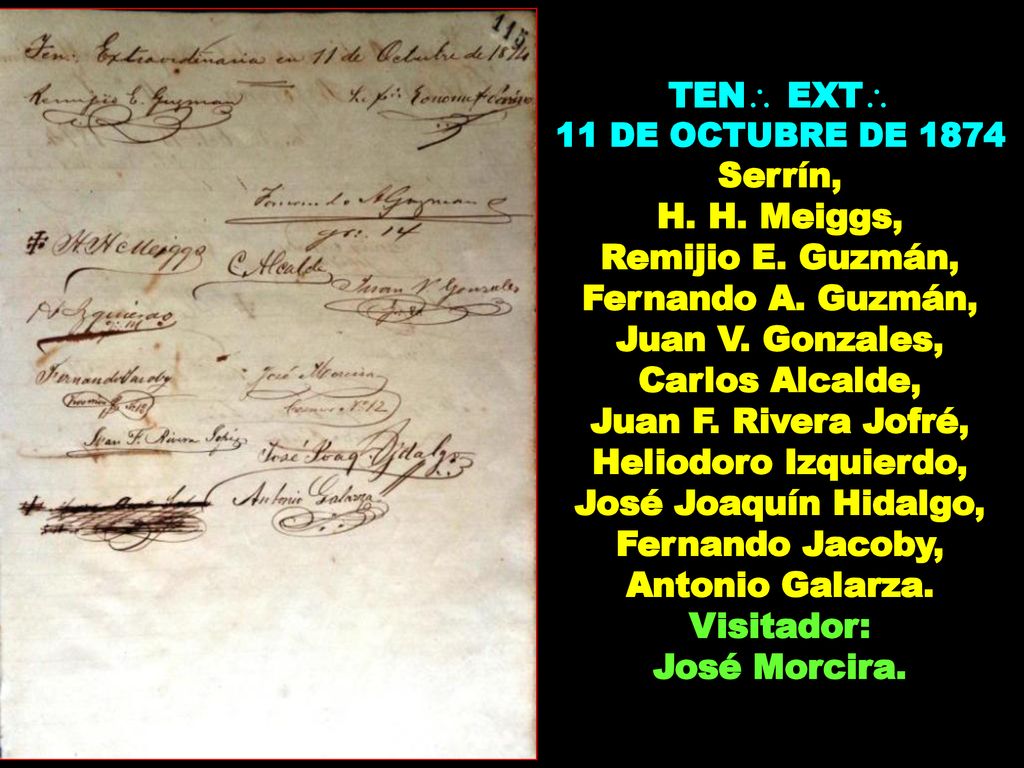 115
Ten∴ Extraordinaria en 11 de Octubre de 1874
Remijio E. Guzman
Fernando A Guzman
gr∴ 14
H H Meiggs
C. Alcalde
Juan V. Gonzales
H Izquierdo
Fernando Jacoby
José Morcira
Nº 12
Juan F. Rivera Jofré
José Joaq. Hidalgo
Antonio Galarza
TEN∴ EXT∴
11 DE OCTUBRE DE 1874
Serrín,
H. H. Meiggs,
Remijio E. Guzmán,
Fernando A. Guzmán,
Juan V. Gonzales,
Carlos Alcalde,
Juan F. Rivera Jofré,
Heliodoro Izquierdo,
José Joaquín Hidalgo,
Fernando Jacoby,
Antonio Galarza.
Visitador:
José Morcira.